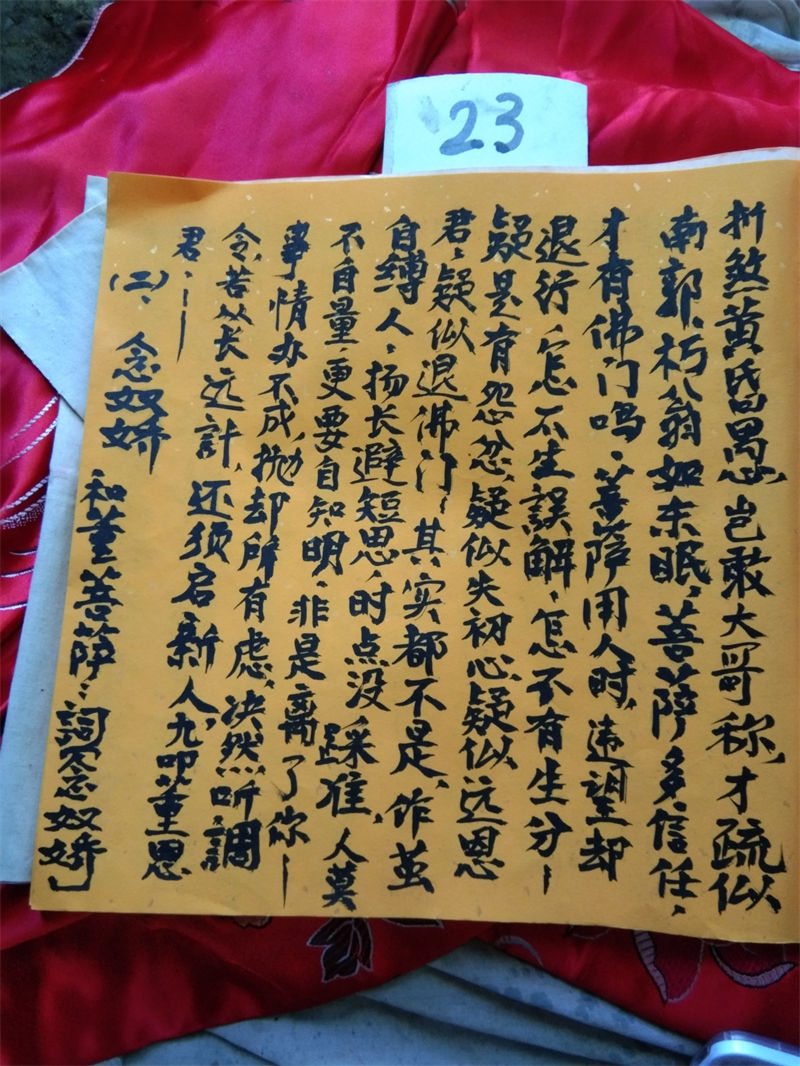 23
折煞黄昏愚,岂敢大哥称,才疏似
南郭,朽翁如东眠,菩萨多信任,
才有佛门鸣,菩萨用人时,违望却
退行,怎不生誤解,怎不有生分—
疑是有怨忿,疑似失初心,疑似远恩
君,疑似退佛门—其实都不是,作茧
自缚人,扬长避短思,时点没踩准,人莫
不自量,更要自知明,非是离了你—
事情办不成,抛却所有虑,决然听調
令,若从长远計,还须启新人,九叩董恩
君,—
(二)、念奴娇 和董菩萨:詞念奴娇」